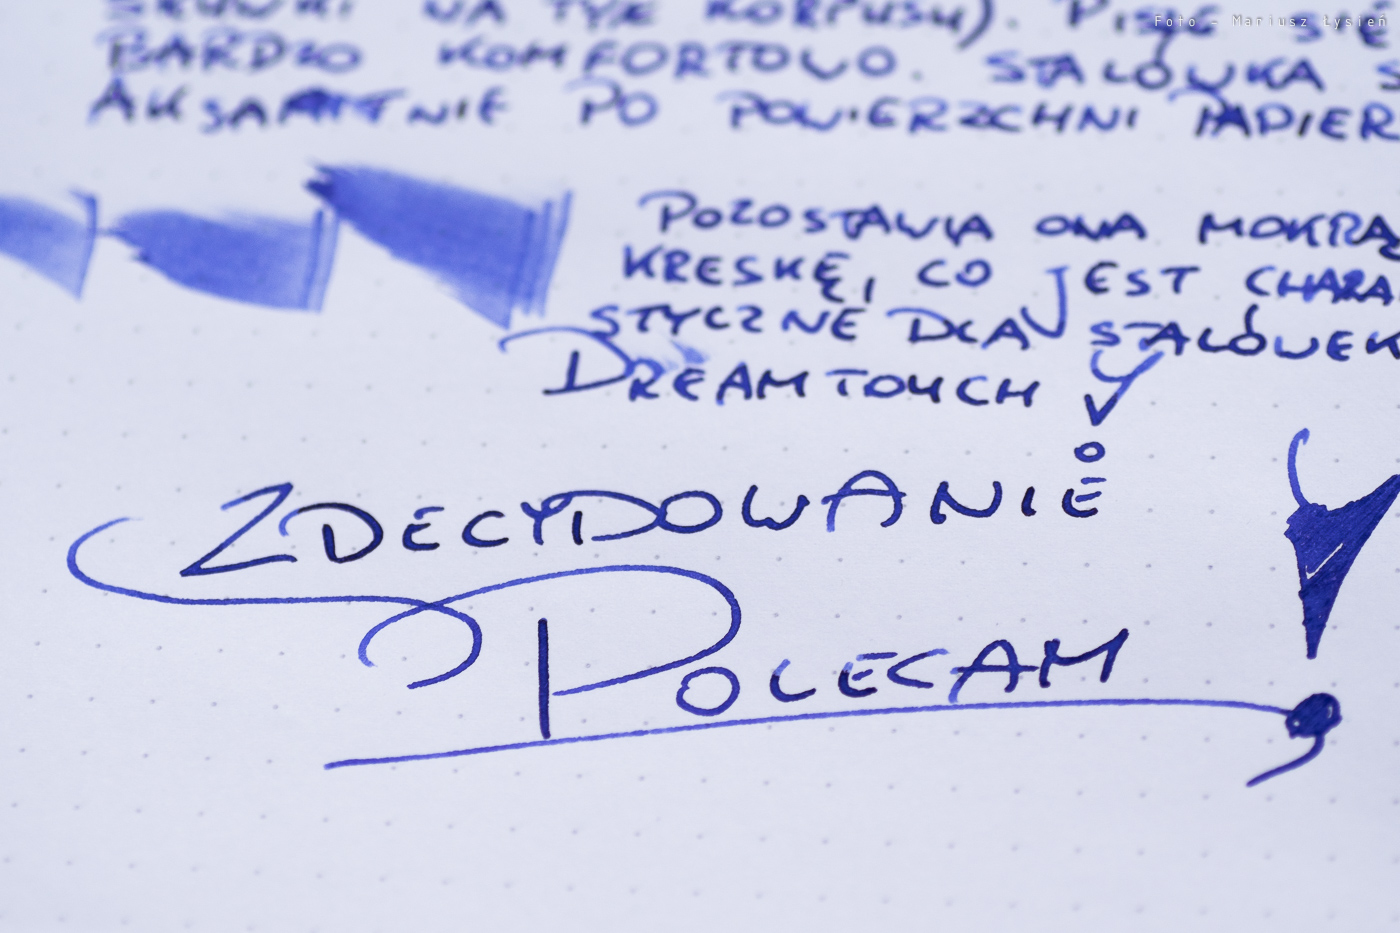 Foto - Mariusz Łysień
SKUWKI NA TYŁ KORPUSU). PISZE SIĘ
BARDZO KOMFORTOWO. STALÓWKA S
AKSAMITNIE PO POWIERZCHNI PAPIER
POZOSTAWIA ONA MOKRĄ
KRESKĘ, CO JEST CHARA
STYCZNE DLA STALÓWEK
DREAMTOUCH
ZDECYDOWANIE
POLECAM!